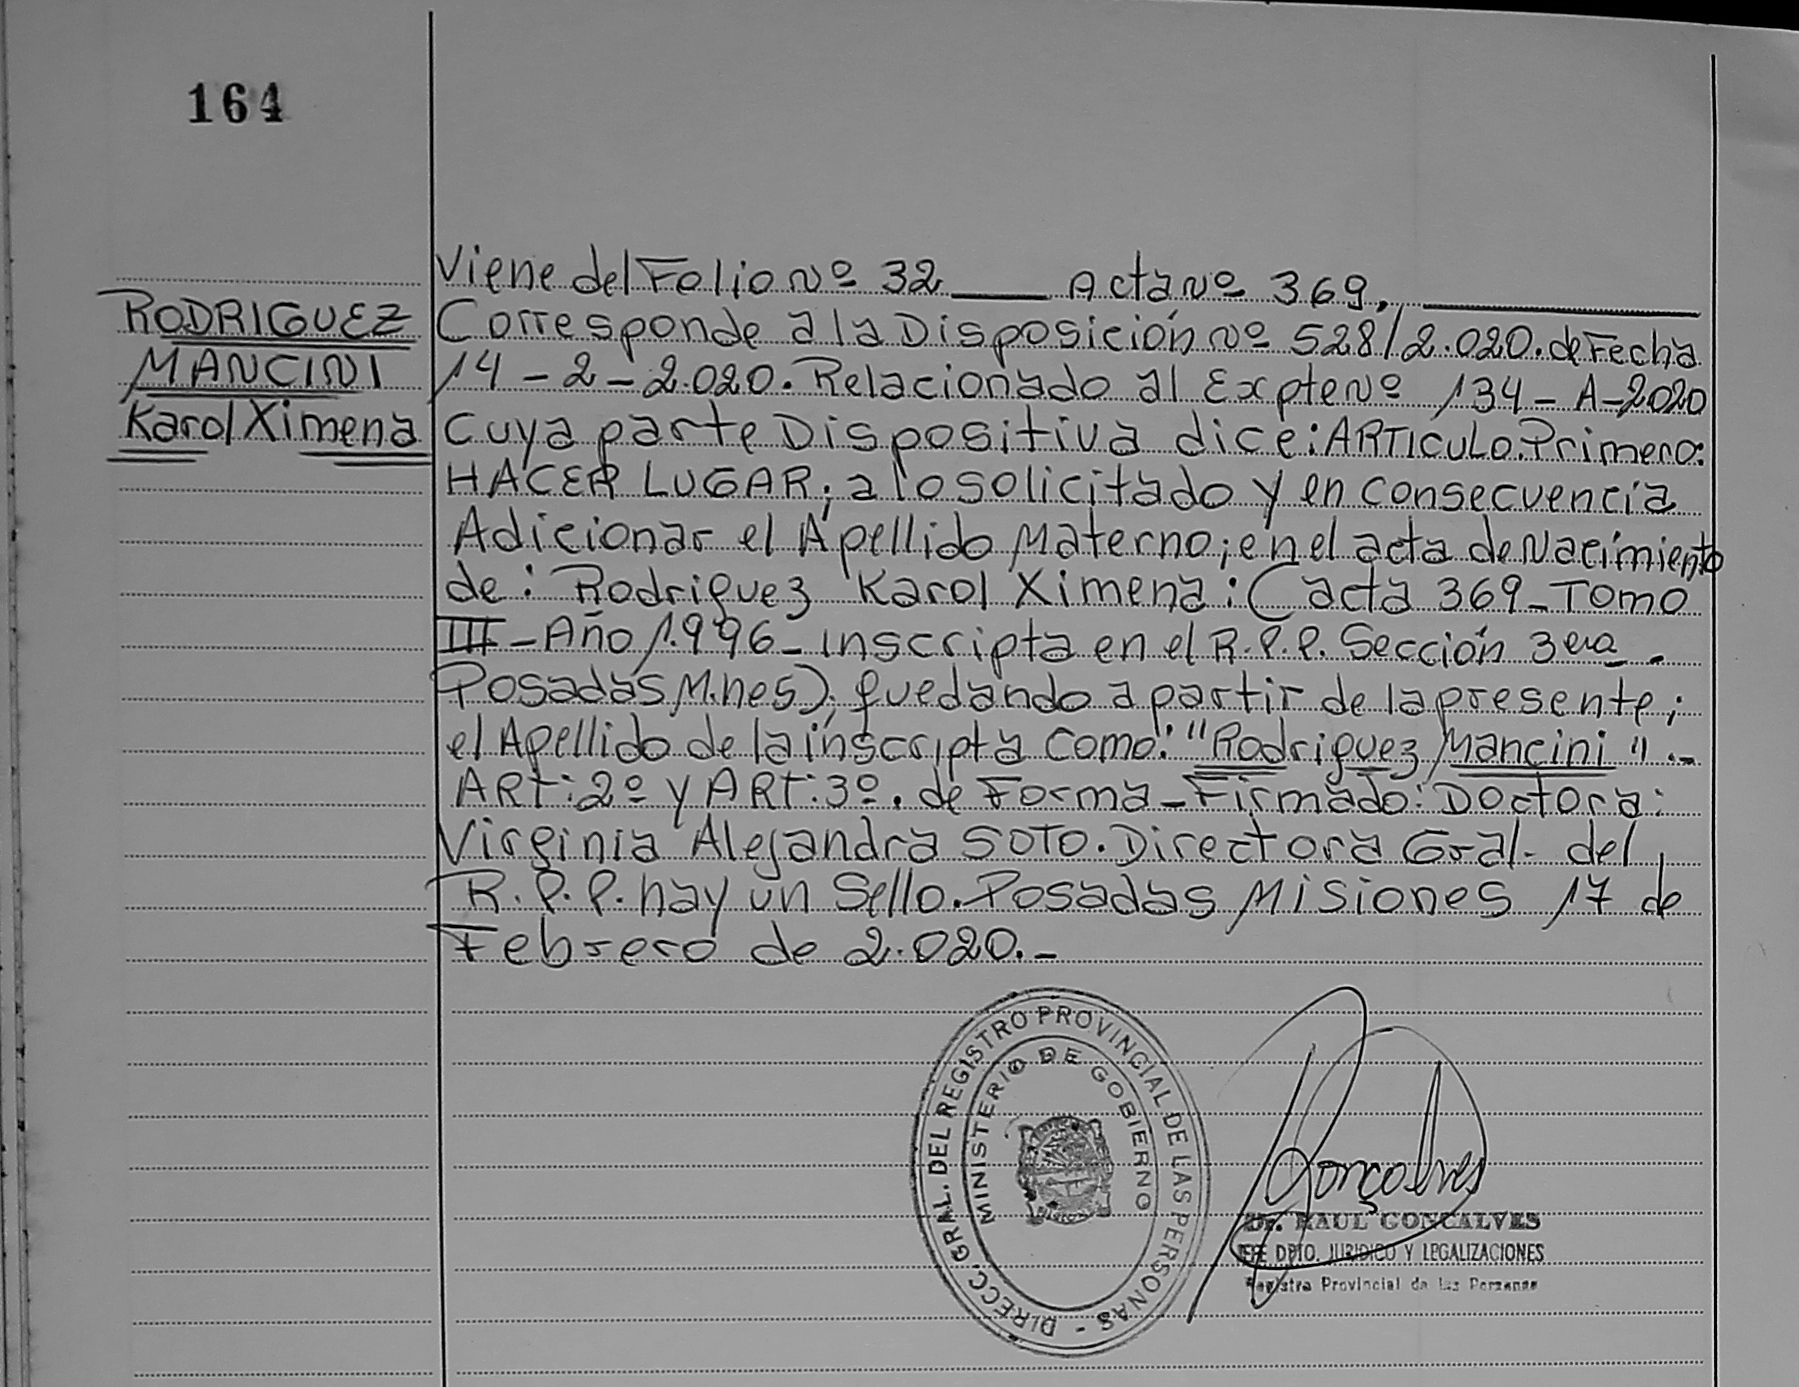 164
Viene del Folio Nº 32 ____ Acta Nº 369, ____
RODRIGUEZ
MANCINI
Karol Ximena
Corresponde a la Disposición Nº 528/2.020. de Fecha
14 - 2 - 2.020. Relacionado al Expte Nº 134 - A - 2020
Cuya parte Dispositiva dice: ARTICULO. Primero:
HACER LUGAR; a lo solicitado y en consecuencia
Adicionar el Apellido Materno; en el acta de Nacimiento
de: Rodriguez Karol Ximena: (acta 369 - Tomo
III - Año 1.996 - inscripta en el R.P.P. Sección 3era -
Posadas M.nes); quedando a partir de la presente;
el Apellido de la inscripta como: "Rodriguez Mancini" .-
ART: 2º y ART: 3º. de Forma - Firmado: Doctora:
Virginia Alejandra SOTO. Directora Gral. del
R.P.P. hay un Sello. Posadas Misiones 17 de
Febrero de 2.020. -
DIRECC. GRAL. DEL REGISTRO PROVINCIAL DE LAS PERSONAS -
MINISTERIO DE GOBIERNO
Gonçalves
Dr. RAUL GONCALVES
JEFE DPTO. JURIDICO Y LEGALIZACIONES
Registro Provincial de las Personas